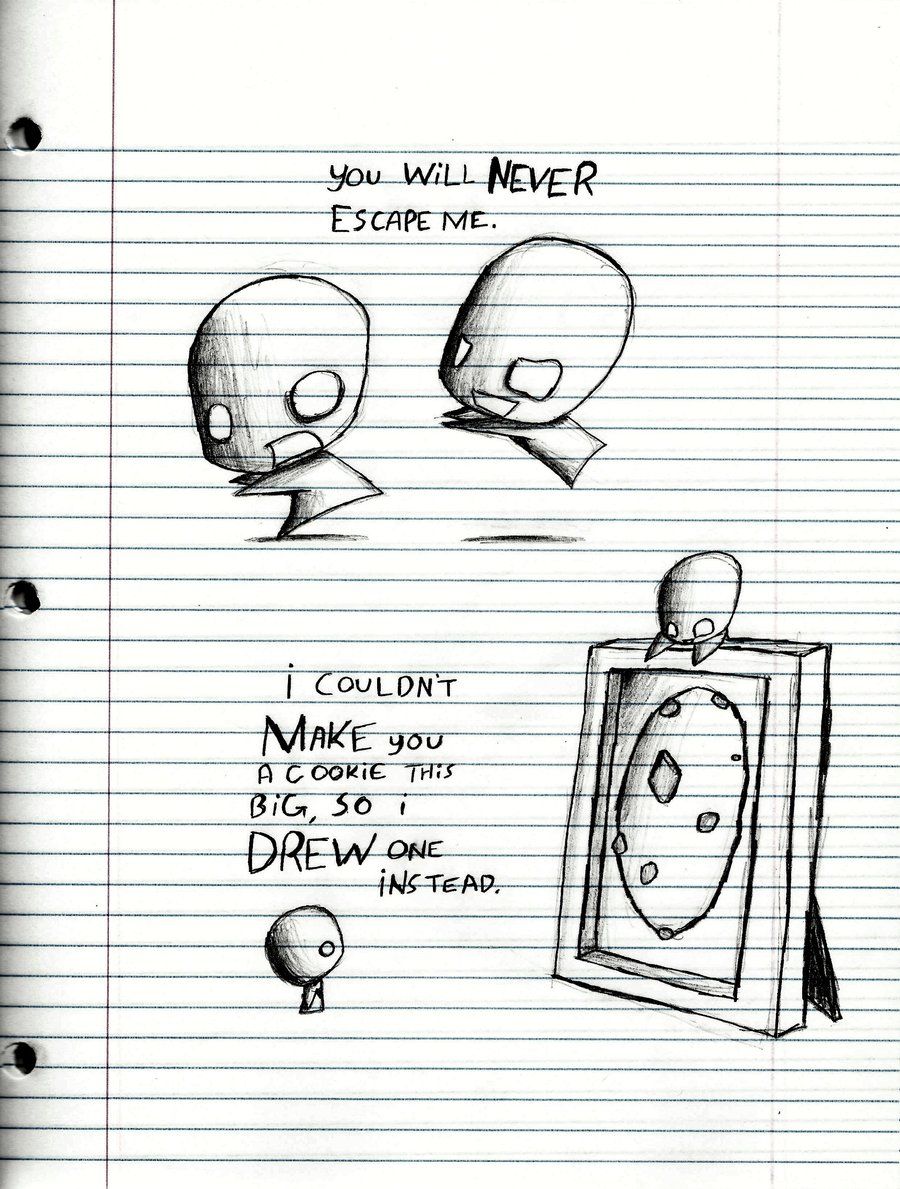 you WiLL NEVER
ESCAPE ME.
i COULDN'T
MAKE you
A COOKiE THiS
BiG, SO i
DREW ONE
iNSTEAD.